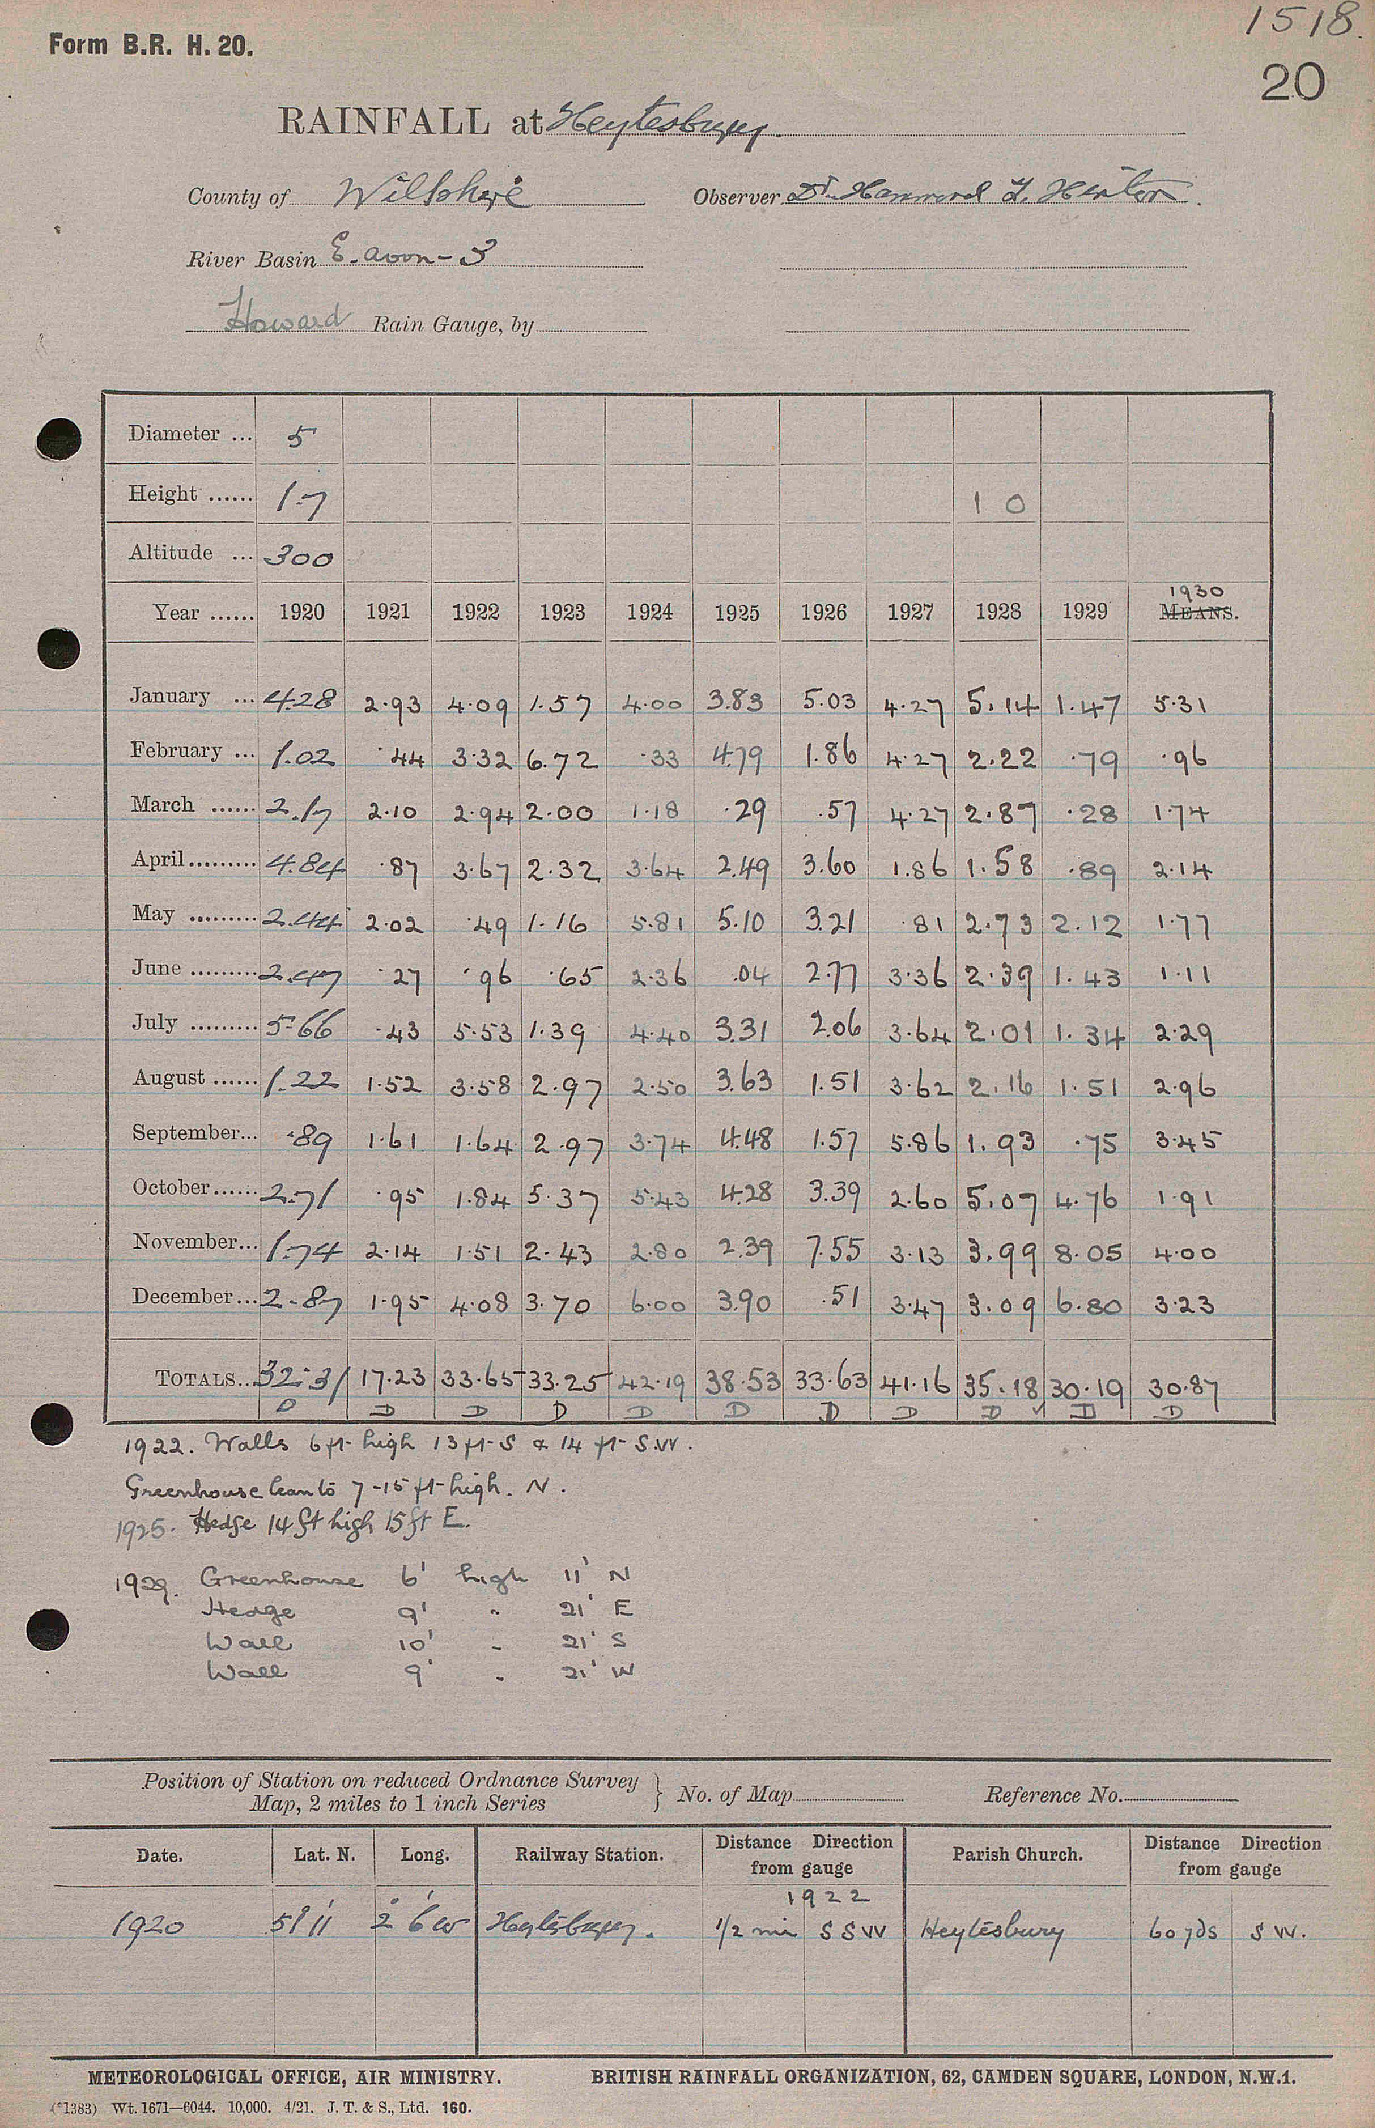 1518.
Form B.R. H. 20.
20
RAINFALL at Heytesbury.
County of Wiltshire Observer Dr. Hammond L. Hinton.
River Basin E. Avon - 3
Howard Rain Gauge, by
Diameter ... 5
Height ...... 1.7 1 0
Altitude ... 300
Year ...... 1920 1921 1922 1923 1924 1925 1926 1927 1928 1929 1930 MEANS.
January ... 4.28 2.93 4.09 1.57 4.00 3.83 5.03 4.27 5.14 1.47 5.31
February ... 1.02 .44 3.32 6.72 .33 4.79 1.86 4.27 2.22 .79 .96
March ...... 2.17 2.10 2.94 2.00 1.18 .29 .57 4.27 2.87 .28 1.74
April ......... 4.84 .87 3.67 2.32 3.64 2.49 3.60 1.86 1.58 .89 2.14
May ......... 2.44 2.02 .49 1.16 5.81 5.10 3.21 .81 2.73 2.12 1.77
June ......... 2.47 .27 .96 .65 2.36 .04 2.77 3.36 2.39 1.43 1.11
July ......... 5.66 .43 5.53 1.39 4.40 3.31 2.06 3.64 2.01 1.34 2.29
August ...... 1.22 1.52 3.58 2.97 2.50 3.63 1.51 3.62 2.16 1.51 2.96
September... .89 1.61 1.64 2.97 3.74 4.48 1.57 5.86 1.93 .75 3.45
October...... 2.71 .95 1.84 5.37 5.43 4.28 3.39 2.60 5.07 4.76 1.91
November... 1.74 2.14 1.51 2.43 2.80 2.39 7.55 3.13 3.99 8.05 4.00
December... 2.87 1.95 4.08 3.70 6.00 3.90 .51 3.47 3.09 6.80 3.23
TOTALS... 32.31 17.23 33.65 33.25 42.19 38.53 33.63 41.16 35.18 30.19 30.87
D D D D D D D D D ✓ D D
1922. Walls 6 ft. high 13 ft. S & 14 ft. S.W.
Greenhouse lean to 7-15 ft. high. N.
1925. Hedge 14 ft high 15 ft E.
1929. Greenhouse 6' high 11' N
Hedge 9' " 21' E
Wall 10' " 21' S
Wall 9' " 21' W
Position of Station on reduced Ordnance Survey Map, 2 miles to 1 inch Series } No. of Map Reference No.
Date. Lat. N. Long. Railway Station. Distance Direction from gauge Parish Church. Distance Direction from gauge
1922
1920 51° 11' 2° 6' W Heytesbury. 1/2 mi SSW Heytesbury 60 yds SW.
METEOROLOGICAL OFFICE, AIR MINISTRY. BRITISH RAINFALL ORGANIZATION, 62, CAMDEN SQUARE, LONDON, N.W.1.
(*1383) Wt. 1671—6044. 10,000. 4/21. J. T. & S., Ltd. 160.